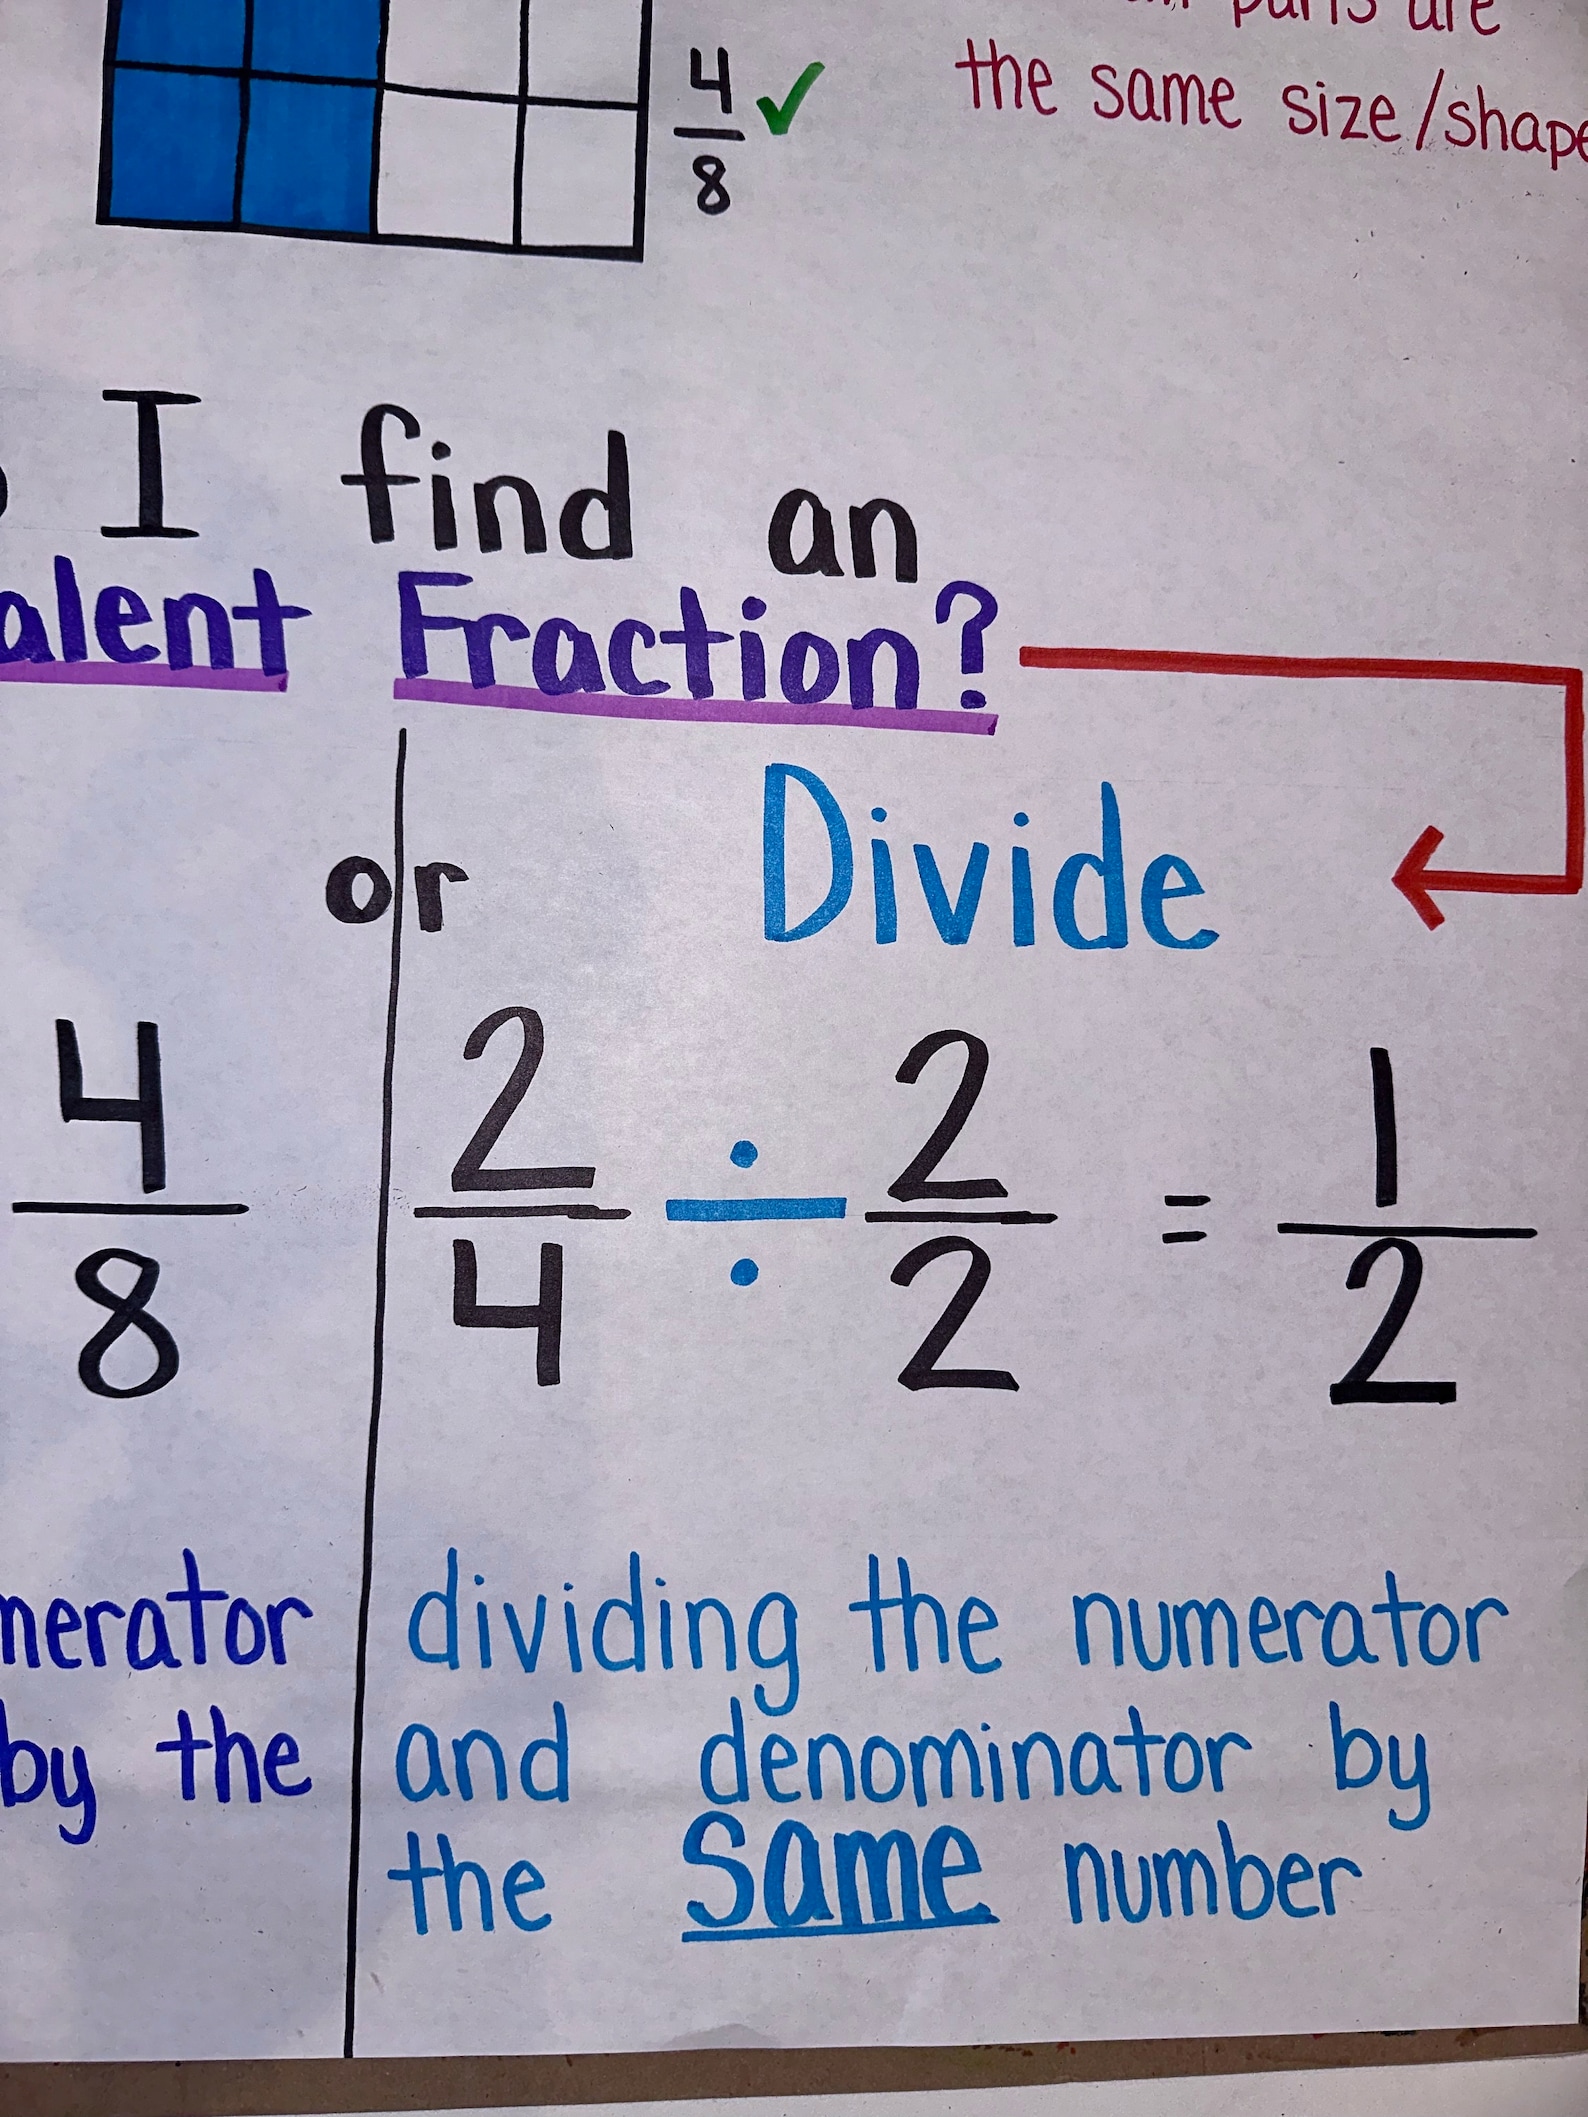 parts are
the same size/shape
4
8
I find an
alent Fraction?
or Divide
4
8
2
4
÷
2
2
=
1
2
nerator
by the
dividing the numerator
and denominator by
the same number